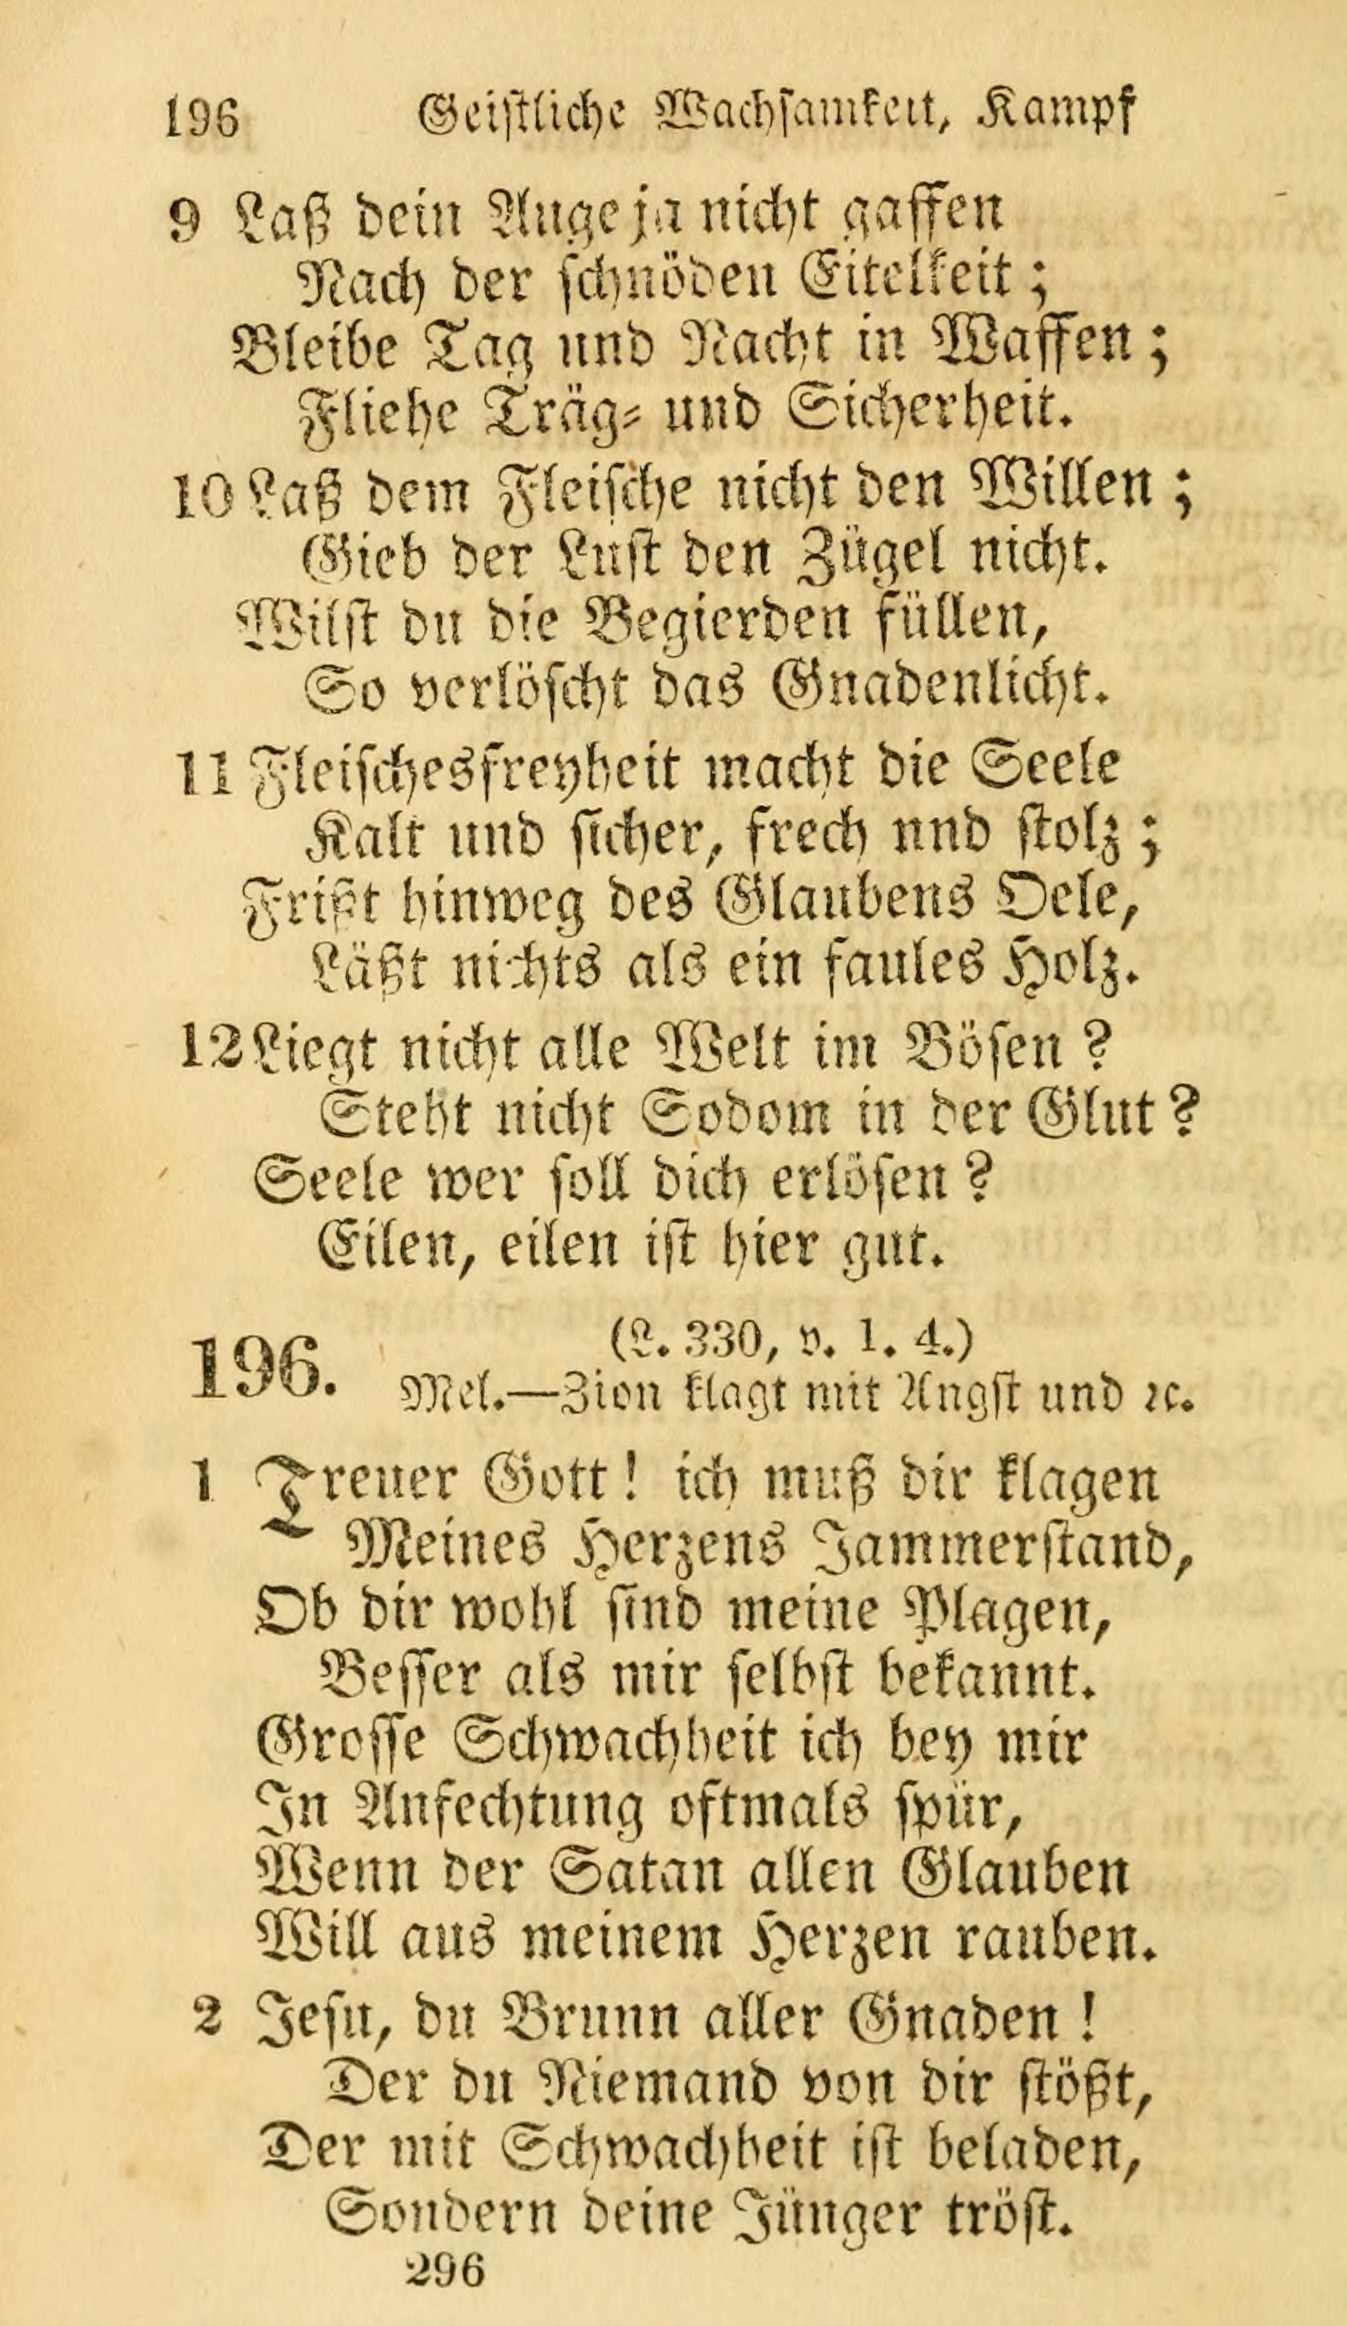 196 Geistliche Wachsamkeit, Kampf
9 Laß dein Auge ja nicht gaffen
Nach der schnöden Eitelkeit;
Bleibe Tag und Nacht in Waffen;
Fliehe Träg- und Sicherheit.
10 Laß dem Fleische nicht den Willen;
Gieb der Lust den Zügel nicht.
Wilst du die Begierden füllen,
So verlöscht das Gnadenlicht.
11 Fleischesfreyheit macht die Seele
Kalt und sicher, frech nnd stolz;
Frißt hinweg des Glaubens Oele,
Läßt nichts als ein faules Holz.
12 Liegt nicht alle Welt im Bösen?
Steht nicht Sodom in der Glut?
Seele wer soll dich erlösen?
Eilen, eilen ist hier gut.
196. (L. 330, v. 1. 4.)
Mel.—Zion klagt mit Angst und ꝛc.
1 Treuer Gott! ich muß dir klagen
Meines Herzens Jammerstand,
Ob dir wohl sind meine Plagen,
Besser als mir selbst bekannt.
Grosse Schwachheit ich bey mir
In Anfechtung oftmals spür,
Wenn der Satan allen Glauben
Will aus meinem Herzen rauben.
2 Jesu, du Brunn aller Gnaden!
Der du Niemand von dir stößt,
Der mit Schwachheit ist beladen,
Sondern deine Jünger tröst.
296